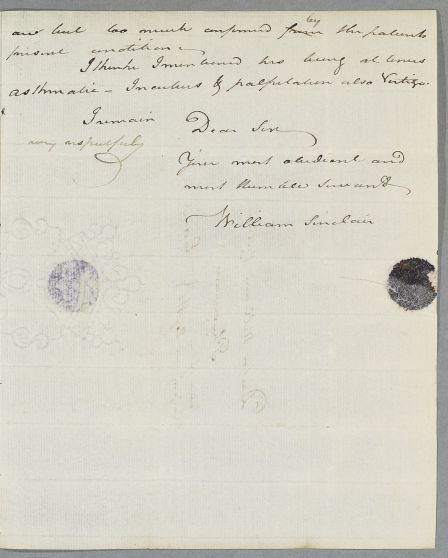 are but too much confirmed from by the patients
present condition.
I think I mentioned his being at times
asthmatic – Incubus & palpitation also Vertigo.
I remain
Dear Sir
very respectfully
Your most obedient and
most Humble Servant
William Sinclair